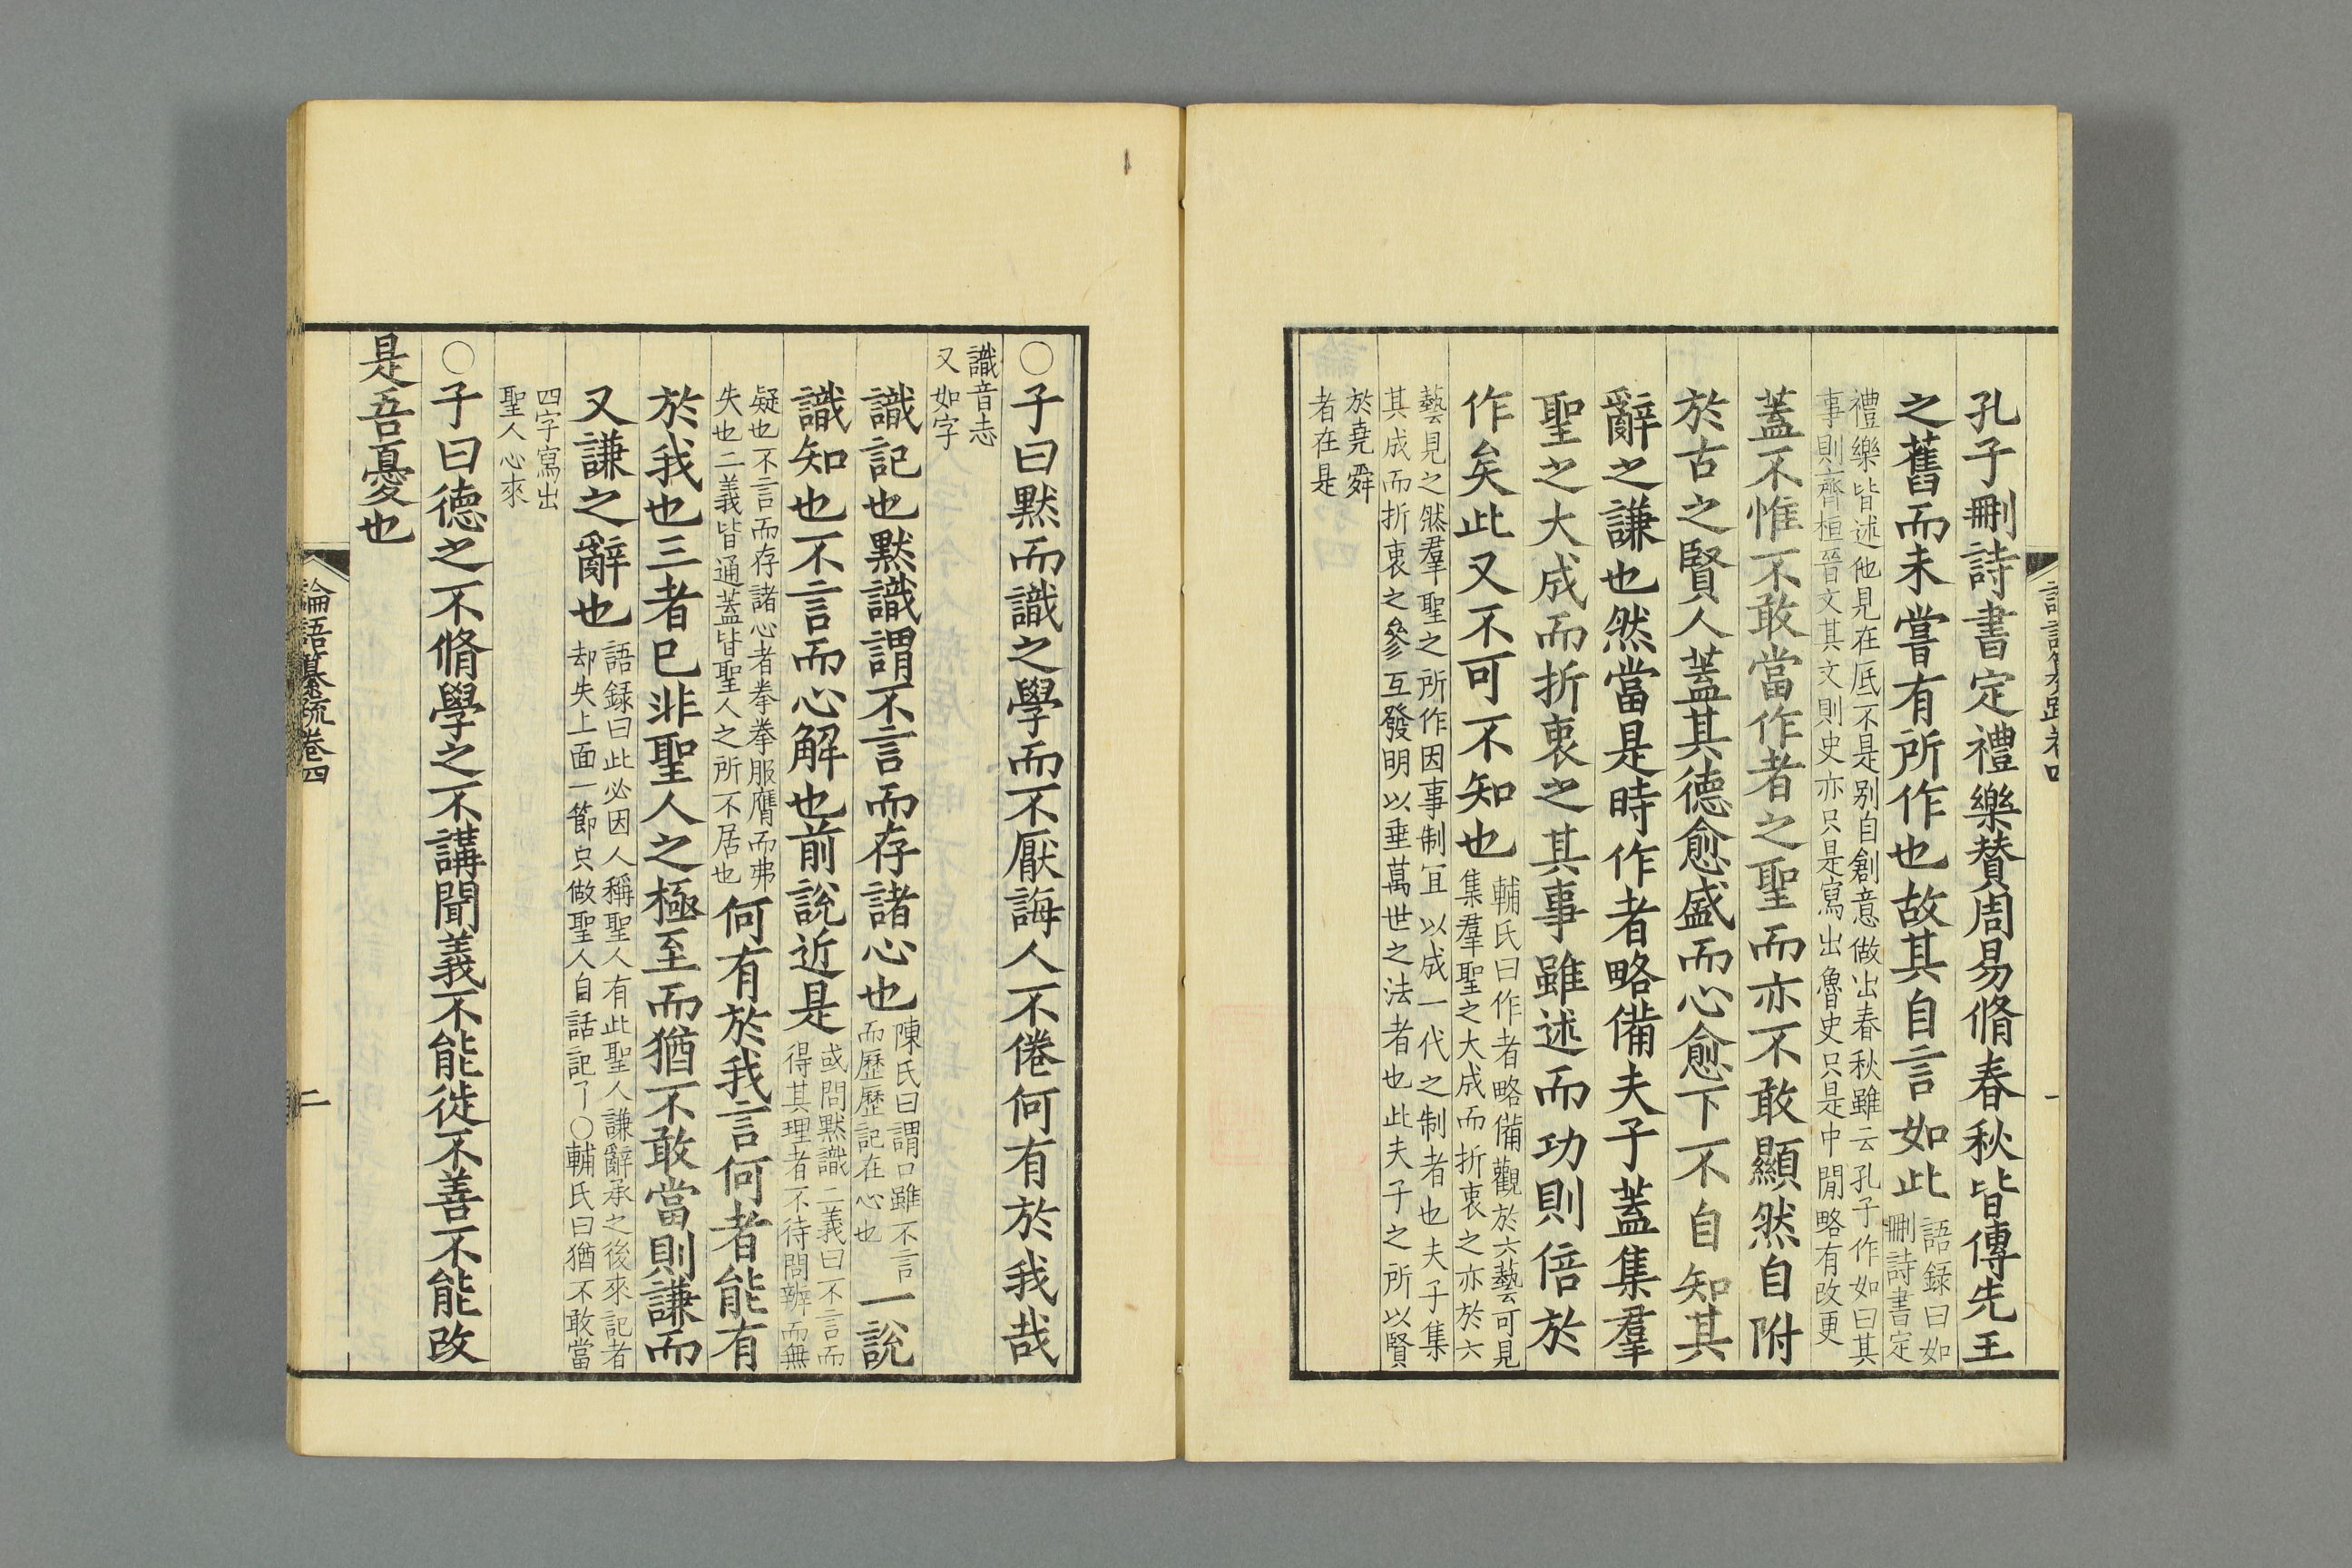 論語纂疏卷四
一
孔子刪詩書定禮樂贊周易脩春秋皆傳先王
之舊而未嘗有所作也故其自言如此
語録曰如
刪詩書定
禮樂皆述他見在底不是别自創意做出春秋雖云孔子作如曰其
事則齊桓晉文其文則史亦只是寫出魯史只是中閒略有改更
蓋不惟不敢當作者之聖而亦不敢顯然自附
於古之賢人蓋其德愈盛而心愈下不自知其
辭之謙也然當是時作者略備夫子蓋集羣
聖之大成而折衷之其事雖述而功則倍於
作矣此又不可不知也
輔氏曰作者略備觀於六藝可見
集羣聖之大成而折衷之亦於六
藝見之然羣聖之所作因事制宜以成一代之制者也夫子集
其成而折衷之參互發明以垂萬世之法者也此夫子之所以賢
於堯舜
者在是
○子曰默而識之學而不厭誨人不倦何有於我哉
識音志
又如字
識記也默識謂不言而存諸心也
陳氏曰謂口雖不言
而歷歷記在心也
一說
識知也不言而心解也前說近是
或問默識二義曰不言而
得其理者不待問辨而無
疑也不言而存諸心者拳拳服膺而弗
失也二義皆通蓋皆聖人之所不居也
何有於我言何者能有
於我也三者已非聖人之極至而猶不敢當則謙而
又謙之辭也
語録曰此必因人稱聖人有此聖人謙辭承之後來記者
却失上面一節只做聖人自話記了○輔氏曰猶不敢當
四字寫出
聖人心來
○子曰德之不脩學之不講聞義不能徙不善不能改
是吾憂也
論語纂疏卷四
二